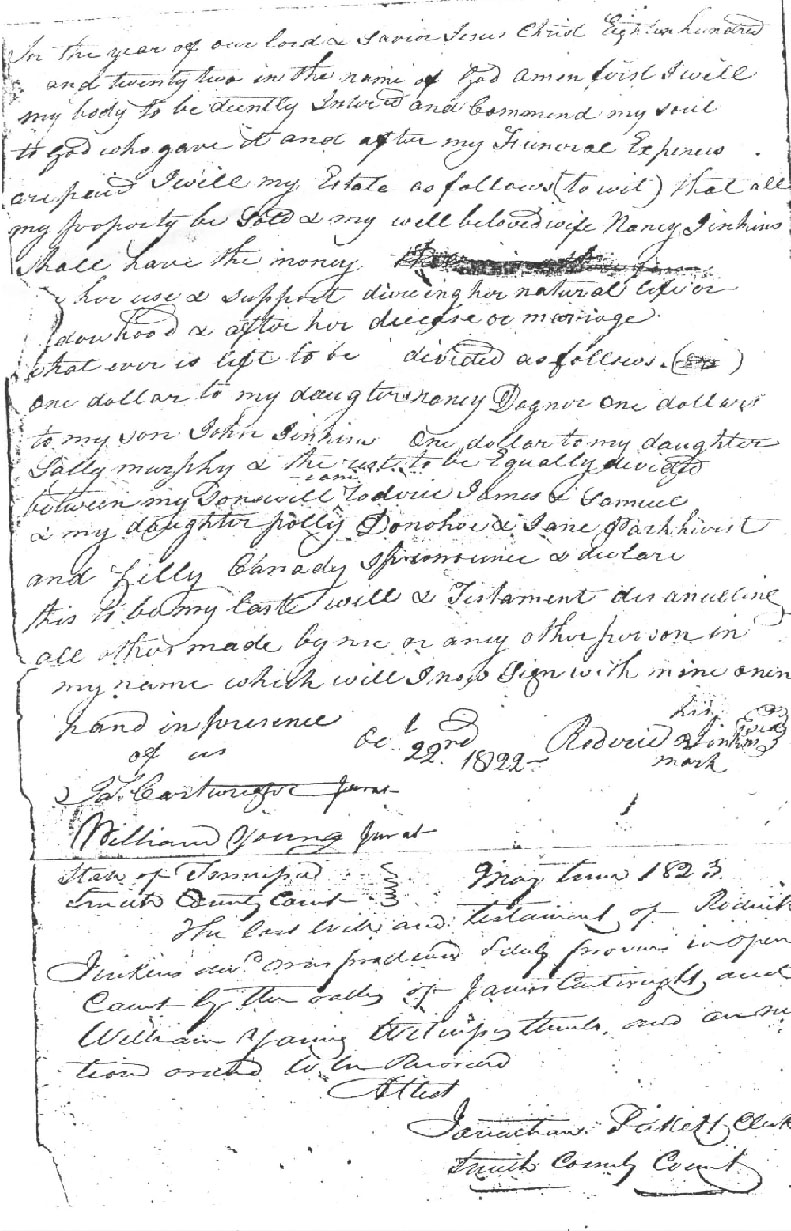 In the year of our lord & Savior Jesus Christ Eighteen hundred
and twenty two in the name of God amen first I will
my body to be decently Intered and Commend my soul
to God who gave it and after my Funeral Expences
are paid I will my Estate as follows (to wit) that all
my property be Sold & my well beloved wife Nancy Jinkins
Shall have the money
her use & support dureing her natural life or
dowhood & after her decease or marriage
what ever is left to be divided as follows
One dollar to my daughter nancy Dagner One dollar
to my son John Jinkins One dollar to my daughter
Sally murphy & the rest to be Equally divided
between my Sons will Roderic James & Samuel
& my daughter polly Donohoe & Jane Parkhurst
and Canady I pronounce & declare
this to be my last will & Testament disanulling
all others made by me or any other person in
my name which will I now Sign with mine own
hand in presence
of us Oct 22nd 1822 Roderic his mark Jinkins
Jas. Cartwright Jurat
William Young Jurat
State of Tennessee May term 1823
Smith County Court
The last Will and testament of Roderick
Jinkins decd was produced & duly proven in open
Court by the oaths of James Cartwright and
William Young thereto, and on
tion ordered to be Recorded
Attest
Jonathan Pickett Clerk
Smith County Court